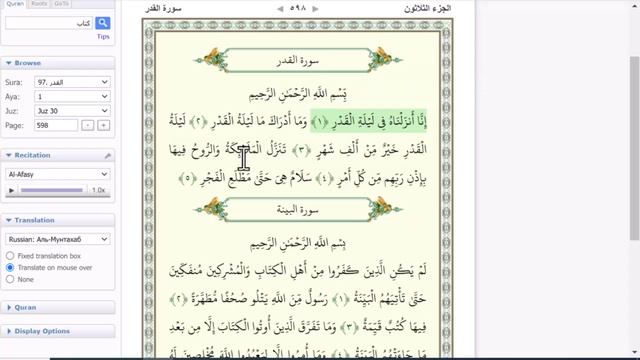 Quran Roots GoTo
كتاب
Tips
Browse
Sura: 97. القدر
Aya: 1
Juz: Juz 30
Page: 598 - +
Recitation
Al-Afasy
1.0x
Translation
Russian: Аль-Мунтахаб
Fixed translation box
Translate on mouse over
None
Quran
Display Options
الجزء الثلاثون ٥٩٨ سورة القدر
سورة القدر
بِسْمِ اللَّهِ الرَّحْمَٰنِ الرَّحِيمِ
إِنَّا أَنزَلْنَاهُ فِي لَيْلَةِ الْقَدْرِ ﴿١﴾ وَمَا أَدْرَاكَ مَا لَيْلَةُ الْقَدْرِ ﴿٢﴾ لَيْلَةُ
الْقَدْرِ خَيْرٌ مِّنْ أَلْفِ شَهْرٍ ﴿٣﴾ تَنَزَّلُ الْمَلَائِكَةُ وَالرُّوحُ فِيهَا
بِإِذْنِ رَبِّهِم مِّن كُلِّ أَمْرٍ ﴿٤﴾ سَلَامٌ هِيَ حَتَّىٰ مَطْلَعِ الْفَجْرِ ﴿٥﴾
سورة البينة
بِسْمِ اللَّهِ الرَّحْمَٰنِ الرَّحِيمِ
لَمْ يَكُنِ الَّذِينَ كَفَرُوا مِنْ أَهْلِ الْكِتَابِ وَالْمُشْرِكِينَ مُنفَكِّينَ
حَتَّىٰ تَأْتِيَهُمُ الْبَيِّنَةُ ﴿١﴾ رَسُولٌ مِّنَ اللَّهِ يَتْلُو صُحُفًا مُّطَهَّرَةً ﴿٢﴾
فِيهَا كُتُبٌ قَيِّمَةٌ ﴿٣﴾ وَمَا تَفَرَّقَ الَّذِينَ أُوتُوا الْكِتَابَ إِلَّا مِن بَعْدِ
مَا جَاءَتْهُمُ الْبَيِّنَةُ ﴿٤﴾ وَمَا أُمِرُوا إِلَّا لِيَعْبُدُوا اللَّهَ مُخْلِصِينَ لَهُ